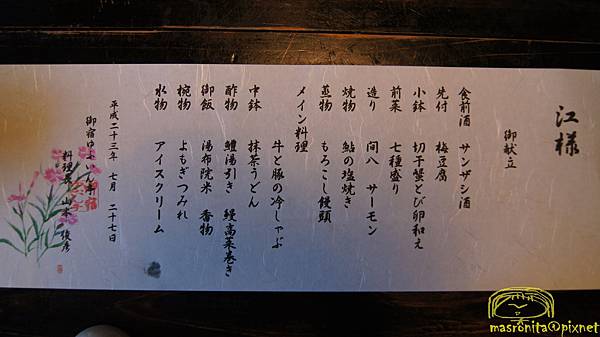 江様
御献立
食前酒 サンザシ酒
先付 梅豆腐
小鉢 切干蟹とび卵和え
前菜 七種盛り
造り 間八 サーモン
焼物 鮎の塩焼き
蒸物 もろこし饅頭
メイン料理
牛と豚の冷しゃぶ
中鉢 抹茶うどん
酢物 鱧湯引き 鰻高菜巻き
御飯 湯布院米 香物
椀物 よもぎつみれ
水物 アイスクリーム
平成二十三年 七月 二十七日
御宿ゆふいん亭
料理長 山本
masronita@pixnet